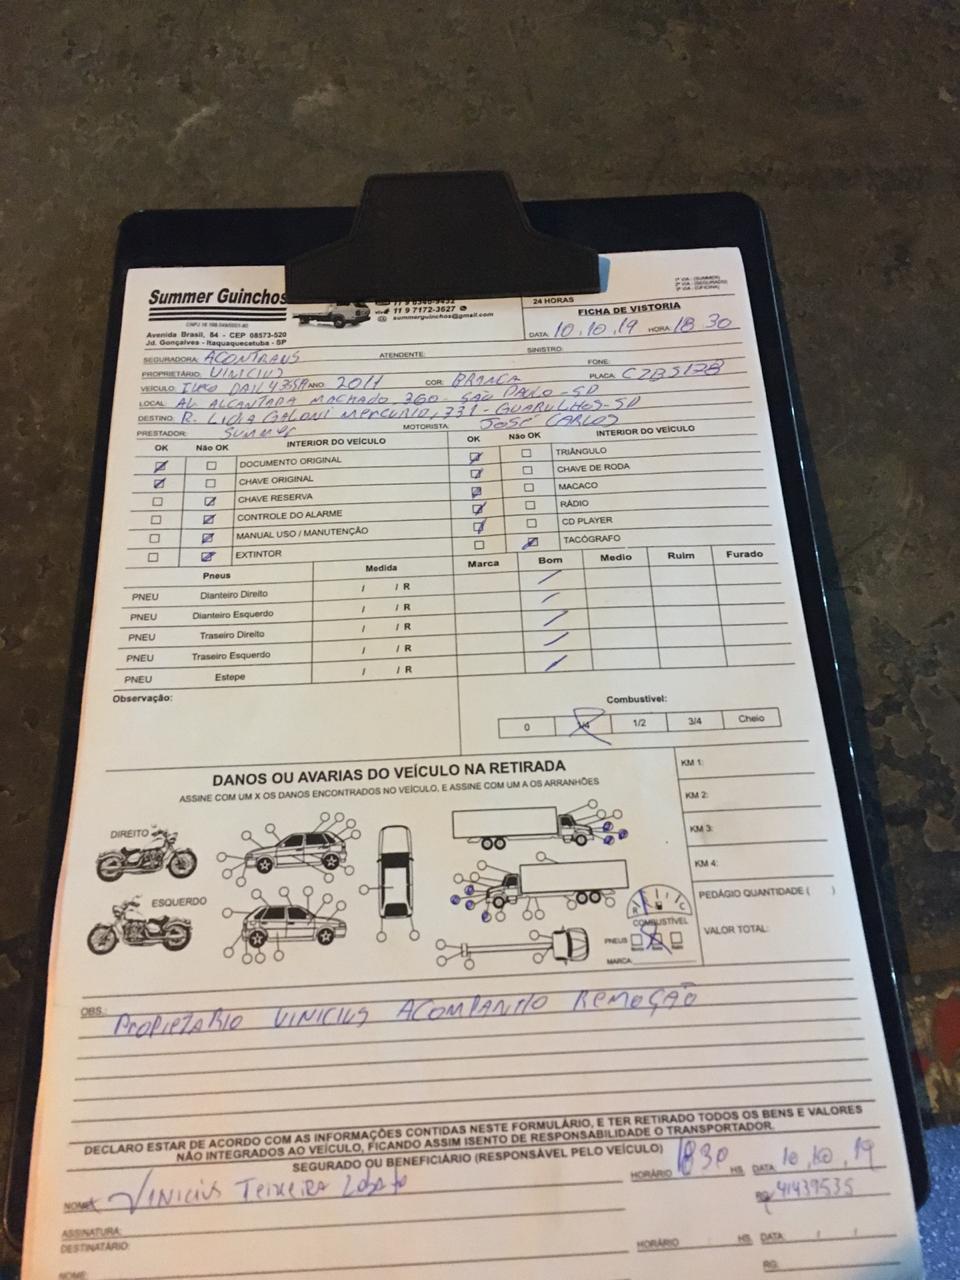 Summer Guinchos
11 9 7172-3627
summerguinchos@gmail.com
Avenida Brasil, 84 - CEP 08573-520
Jd. Gonçalves - Itaquaquecetuba - SP
1ª VIA - (SUMMER)
2ª VIA - (SEGURADO)
3ª VIA - (OFICINA)
24 HORAS
FICHA DE VISTORIA
DATA: 10.10.19 HORA: 18 30
SEGURADORA: ACONTRANS ATENDENTE: SINISTRO:
PROPRIETÁRIO: VINICIUS FONE:
VEÍCULO: DAILY ANO: 2011 COR: BRANCA PLACA:
LOCAL: AV ALCANTARA MACHADO, 360 - SÃO PAULO - SP
DESTINO: R. LIDIA GALONI MERCURIO, 731 - GUARULHOS-SP
PRESTADOR: SUMMER MOTORISTA: JOSÉ CARLOS
OK Não OK INTERIOR DO VEÍCULO OK Não OK INTERIOR DO VEÍCULO
DOCUMENTO ORIGINAL TRIÂNGULO
CHAVE ORIGINAL CHAVE DE RODA
CHAVE RESERVA MACACO
CONTROLE DO ALARME RÁDIO
MANUAL USO / MANUTENÇÃO CD PLAYER
EXTINTOR TACÓGRAFO
Pneus Medida Marca Bom Medio Ruim Furado
PNEU Dianteiro Direito / / R
PNEU Dianteiro Esquerdo / / R
PNEU Traseiro Direito / / R
PNEU Traseiro Esquerdo / / R
PNEU Estepe / / R
Observação: Combustível:
0 1/4 1/2 3/4 Cheio
DANOS OU AVARIAS DO VEÍCULO NA RETIRADA
ASSINE COM UM X OS DANOS ENCONTRADOS NO VEÍCULO, E ASSINE COM UM A OS ARRANHÕES
KM 1:
KM 2:
KM 3:
KM 4:
DIREITO
ESQUERDO
COMBUSTÍVEL
PNEUS
MARCA:
PEDÁGIO QUANTIDADE ( )
VALOR TOTAL:
OBS.: PROPIETARIO VINICIUS ACOMPANHO REMOÇÃO
DECLARO ESTAR DE ACORDO COM AS INFORMAÇÕES CONTIDAS NESTE FORMULÁRIO, E TER RETIRADO TODOS OS BENS E VALORES
NÃO INTEGRADOS AO VEÍCULO, FICANDO ASSIM ISENTO DE RESPONSABILIDADE O TRANSPORTADOR.
SEGURADO OU BENEFICIÁRIO (RESPONSÁVEL PELO VEÍCULO) HORÁRIO 1830 HS. DATA 10.10.19
NOME: VINICIUS TEIXEIRA Lobato RG: 41439535
ASSINATURA:
DESTINATÁRIO: HORÁRIO HS. DATA: / /
NOME: RG: